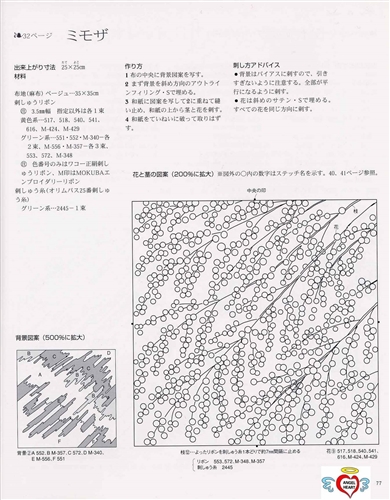 32ページ ミモザ
出来上がり寸法 25×25cm
材料
布地(麻布)ベージュ―35×35cm
刺しゅうリボン
3.5mm幅 指定以外は各1束
黄色系―517、518、540、541、
616、M-424、M-429
グリーン系―551・552・M-340―各
2束、M-556・M-357―各3束、
553、572、M-348
色番号のみはワコー正絹刺し
ゅうリボン、M印はMOKUBAエ
ンブロイダリーリボン
刺しゅう糸(オリムパス25番刺しゅ
う糸)
グリーン系―2445―1束
作り方
1 布の中央に背景図案を写す。
2 まず背景を斜め方向のアウトライ
ンフィリング・Sで埋める。
3 和紙に図案を写して2に重ねて縫
い止め、和紙の上から葉と花を刺す。
4 和紙をていねいに破って取りはず
す。
刺し方アドバイス
● 背景はバイアスに刺すので、引き
すぎないように注意する。全部が平
行になるように刺す。
● 花は斜めのサテン・Sで埋める。
すべての花を同じ方向に刺す。
花と茎の図案(200%に拡大) ※図外の○内の数字はステッチ名を示す。40、41ページ参照。
中央の印
枝
花
背景図案(500%に拡大)
A
B
C
D
E
F
背景②A 552、B M-357、C 572、D M-340、
E M-556、F 551
枝⑫…よったリボンを刺しゅう糸1本どりで約7㎜間隔に止める
リボン 553、572、M-348、M-357
刺しゅう糸 2445
517、518、540、541、
616、M-424、M-429
77
ANGEL
HEART